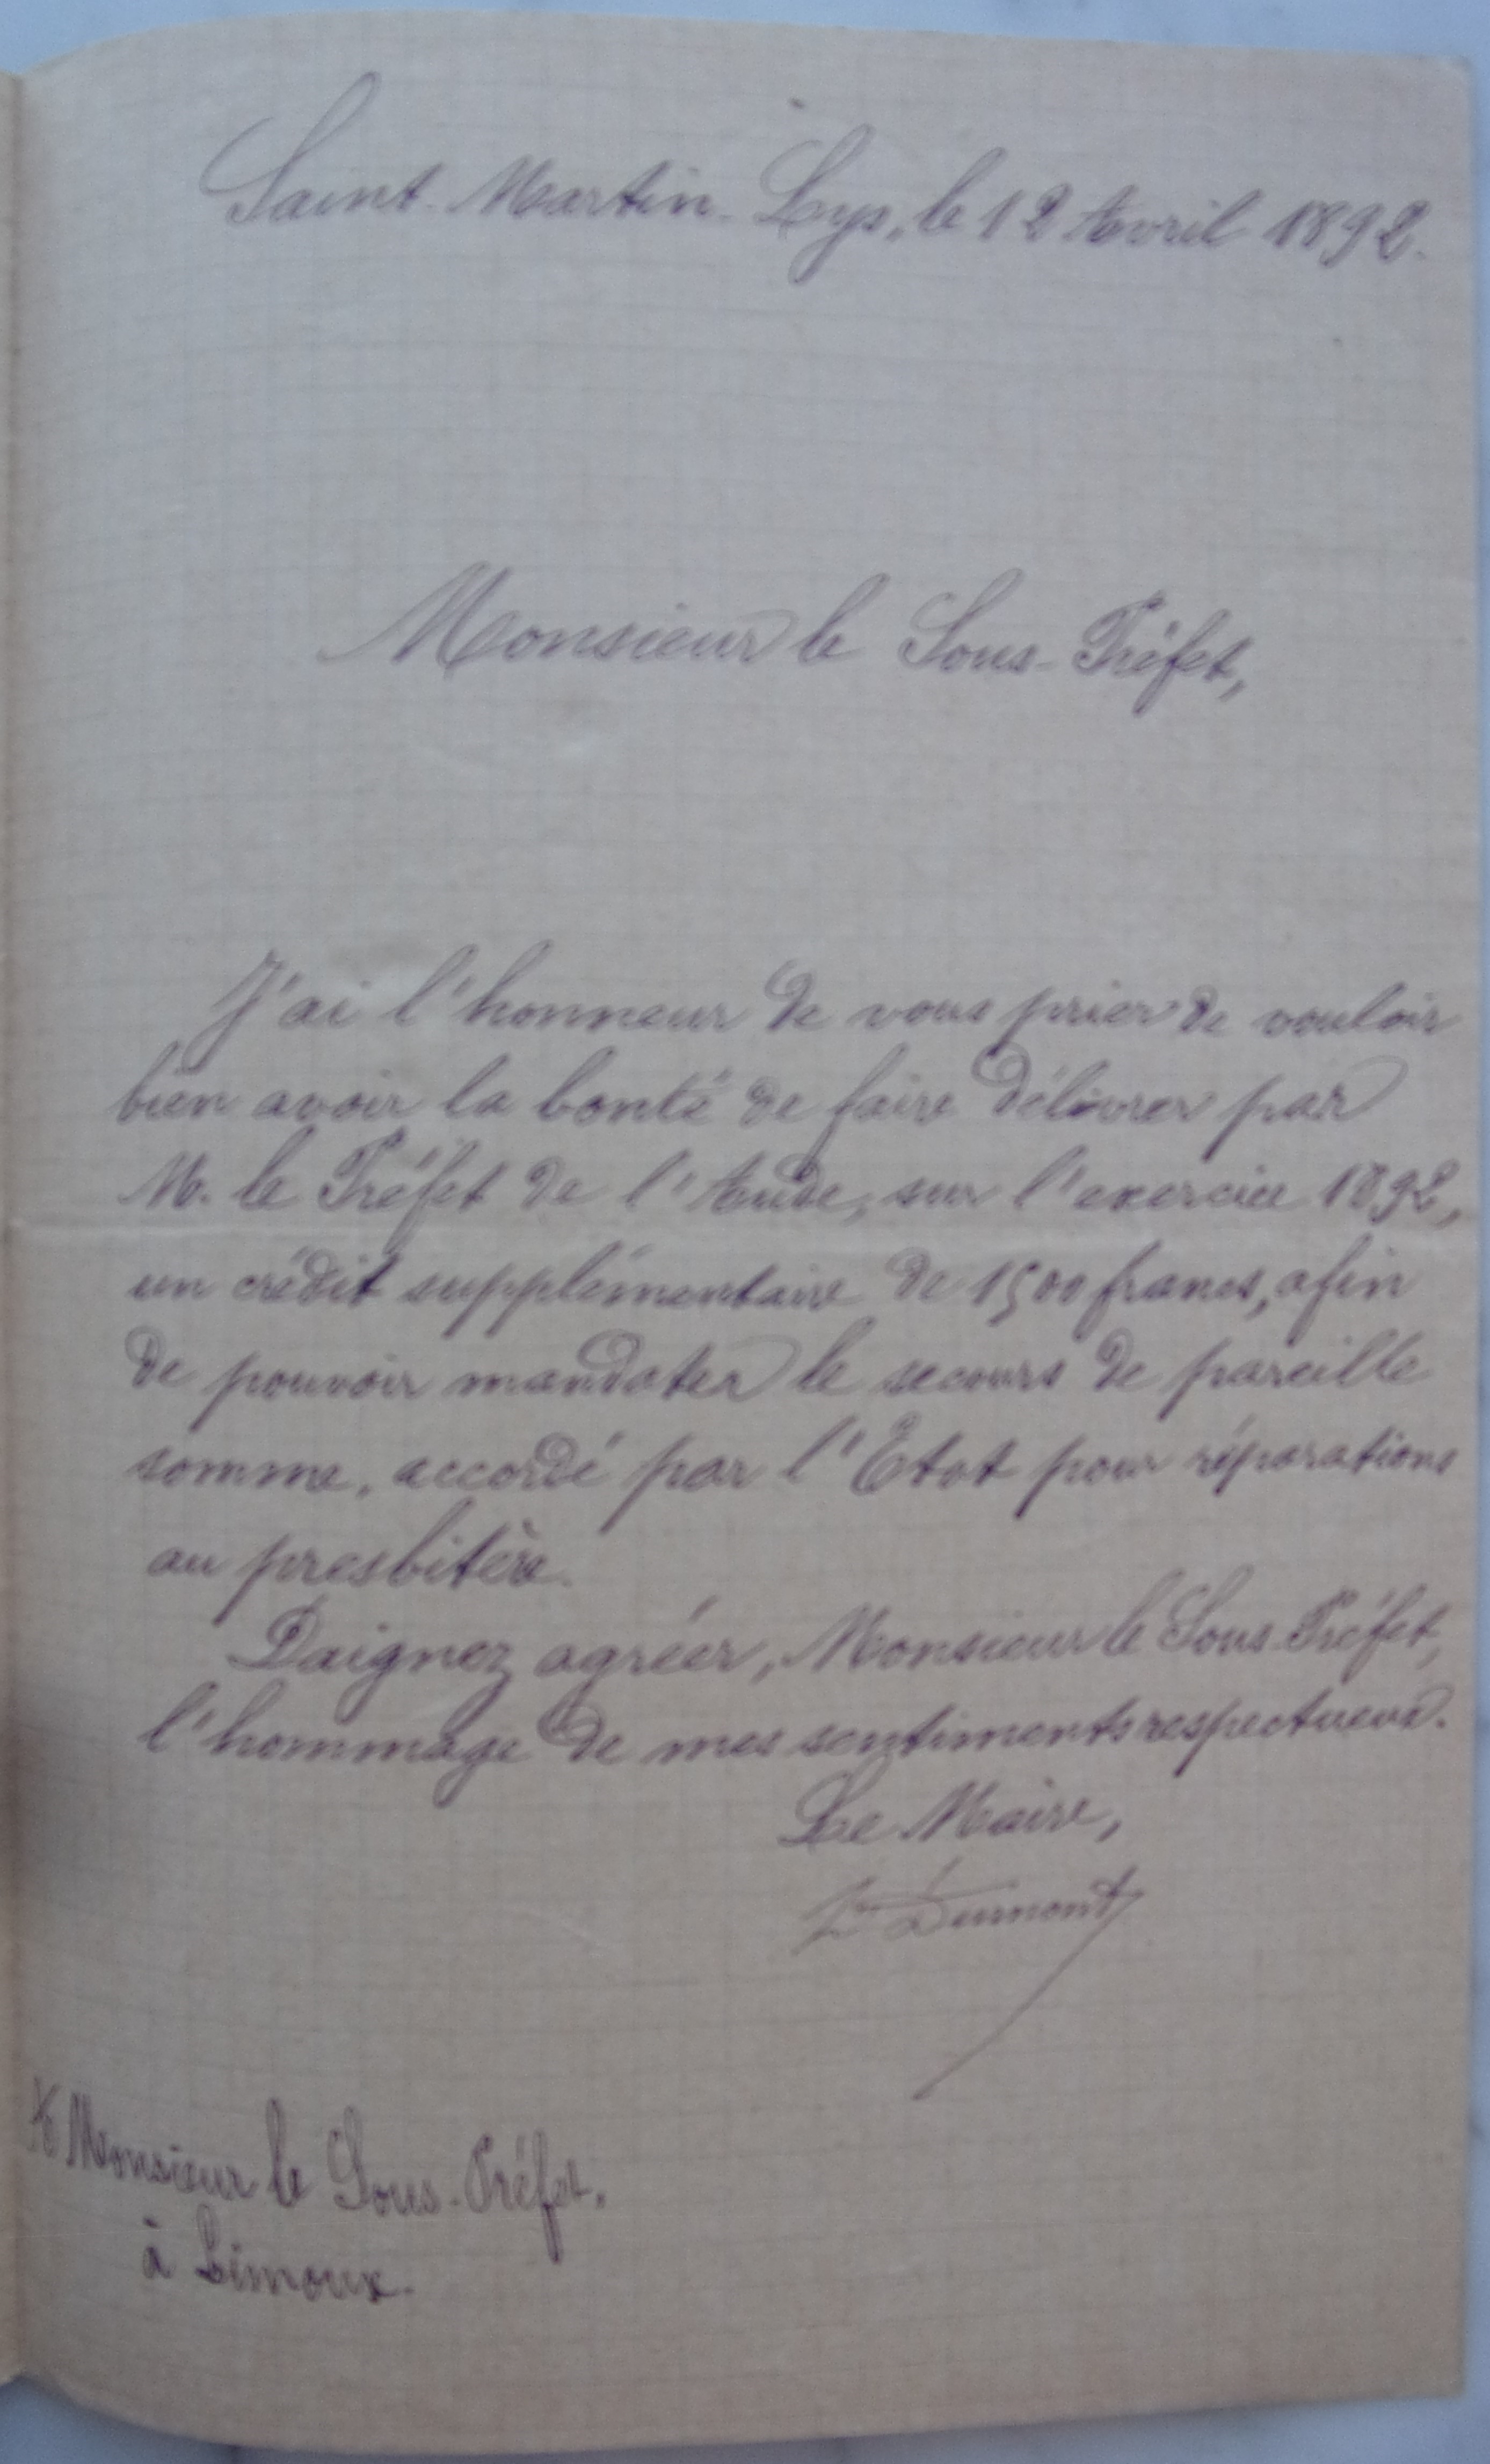 Saint-Martin-Lys, le 12 Avril 1892.
Monsieur le Sous-Préfet,
J'ai l'honneur de vous prier de vouloir
bien avoir la bonté de faire délivrer par
M. le Préfet de l'Aude, sur l'exercice 1892,
un crédit supplémentaire de 1500 francs, afin
de pouvoir mandater le secours de pareille
somme, accordé par l'Etat pour réparations
au presbitère.
Daignez agréer, Monsieur le Sous-Préfet,
l'hommage de mes sentiments respectueux.
Le Maire,
Dumont
A Monsieur le Sous-Préfet.
à Limoux.